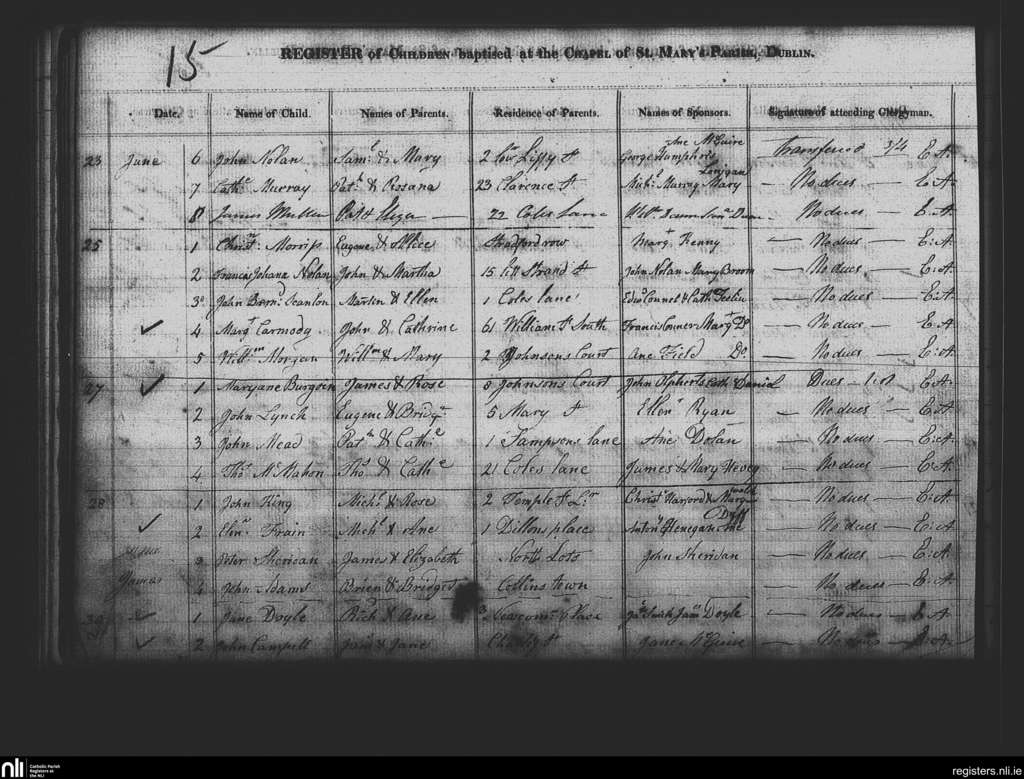 15
REGISTER of CHILDREN baptised at the CHAPEL of ST. MARY'S PARISH, DUBLIN.
Date. Name of Child. Names of Parents. Residence of Parents. Names of Sponsors. Signature of attending Clergyman.
23 June 6 John Nolan Saml & Mary 2 Low Liffy St George Humphris Ane McGuire Transfered 3/4 E:A.
7 Cathe Murray Patk & Rosana 23 Clarence St Michl Murray Mary Lonigan — No dues — E:A.
8 James Mullen Pat & Eliza — 22 Coles Lane No dues — E:A.
25 1 Christr Morriss Eugene & Allice Stradford row Margt Kenny — No dues — E:A.
2 Francis Johana Nolan John & Martha 15 Litt Strand St John Nolan Mary Broom — No dues — E:A.
3 John Bernd Scanlon Marten & Ellen 1 Coles lane Edwd Connel & Cath — No dues — E:A.
4 Margt Carmody John & Cathrine 61 William St South Francis Conner Margt Do — No dues — E:A.
5 Willm Morgan Willm & Mary 2 Johnsons Court Ane Field Do — No dues — E:A.
27 1 Maryane Burgoen James & Rose 8 Johnsons Court John Daniel Dues — E:A.
2 John Lynch Eugene & Bridgt 5 Mary St Ellenr Ryan — No dues — E:A.
3 John Mead Patk & Cathe 1 Sampsons lane Ane Dolan — No dues — E:A.
4 Thos McMahon Thos & Cathe 21 Coles lane James & Mary Hevey — No dues — E:A.
28 1 John King Michl & Rose 2 Temple St Ln Christr Harford & Margt — No dues — E:A.
2 Elenr Frain Michl & Ane 1 Dillons place Antony Henegan Ane Duff — No dues — E:A.
3 Peter Sherican James & Elizabeth North Lots John Sheridan — No dues — E:A.
James 4 John Adams Brien & Bridget Collins town — No dues — E:A.
1 Jane Doyle Richd & Ane 3 Newcomn place Doyle — No dues — E:A.
2 John Campell & Jane Charity St Jane McGuire — No dues — E:A.
nli
Catholic Parish
Registers at
the NLI
registers.nli.ie